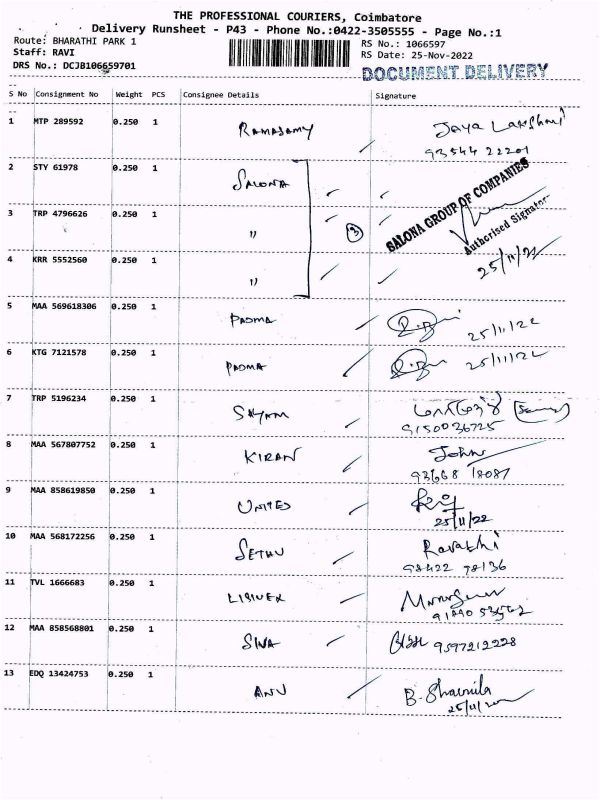 THE PROFESSIONAL COURIERS, Coimbatore
Delivery Runsheet - P43 - Phone No.:0422-3505555 - Page No.:1
Route: BHARATHI PARK 1 RS No.: 1066597
Staff: RAVI RS Date: 25-Nov-2022
DRS No.: DCJB106659701 DOCUMENT DELIVERY
S No Consignment No Weight PCS Consignee Details Signature
1 MTP 289592 0.250 1 RAMASAMY Jaya Lakshmi
93544 22201
2 STY 61978 0.250 1 SALONA
SALONA GROUP OF COMPANIES
3 TRP 4796626 0.250 1 " 3
Authorised Signator
4 KRR 5552560 0.250 1 " 25/11/22
5 MAA 569618306 0.250 1 PADMA 25/11/22
6 KTG 7121578 0.250 1 PADMA 25/11/22
7 TRP 5196234 0.250 1 SHYAM
9150036725
8 MAA 567807752 0.250 1 KIRAN John
93668 18087
9 MAA 858619850 0.250 1 UNITED
25/11/22
10 MAA 568172256 0.250 1 SETHU Revathi
98422 78136
11 TVL 1666683 0.250 1
12 MAA 858568801 0.250 1 SIVA 9597212228
13 EDQ 13424753 0.250 1 ANU B. Sharmila